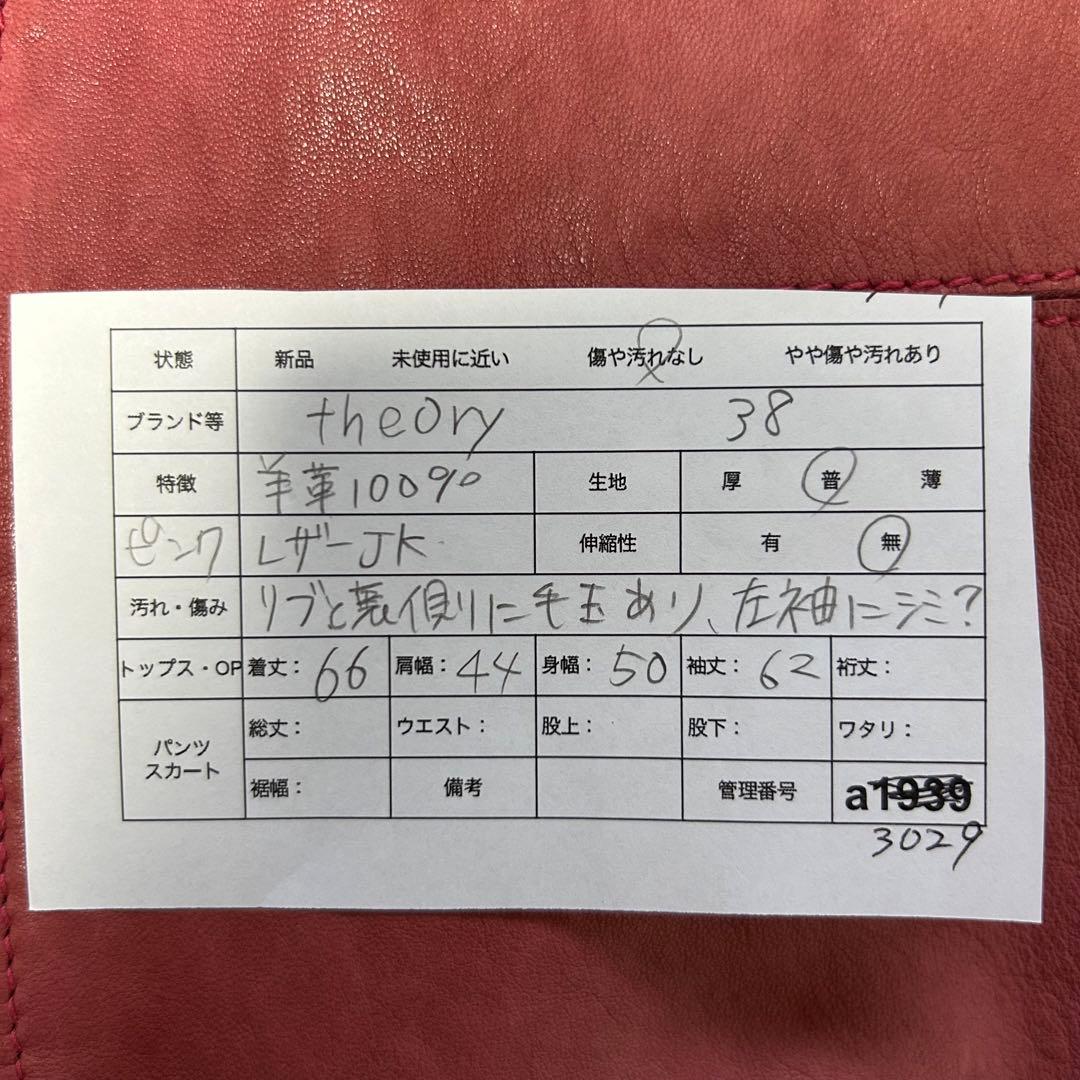 状態 新品 未使用に近い 傷や汚れなし やや傷や汚れあり
ブランド等 theory 38
特徴 羊革100% 生地 厚 普 薄
ピンク レザーJK 伸縮性 有 無
汚れ・傷み リブと裏側りに毛玉あり、左袖にシミ?
トップス・OP 着丈: 66 肩幅: 44 身幅: 50 袖丈: 62 裄丈:
パンツ スカート 総丈: ウエスト: 股上: 股下: ワタリ:
裾幅: 備考 管理番号 a1939
3029